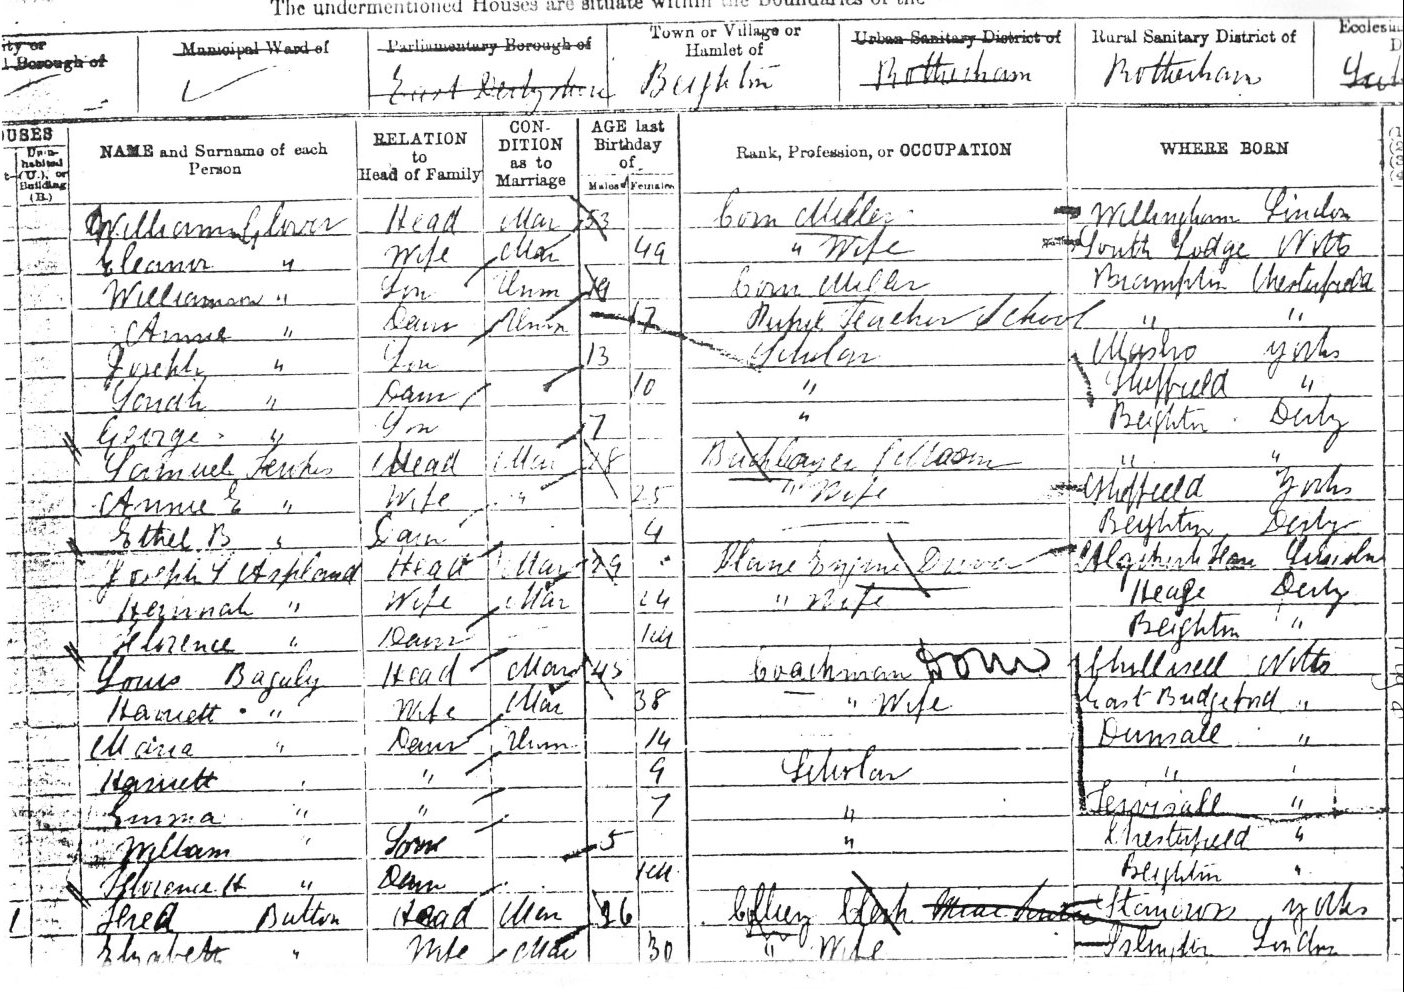 The undermentioned Houses are situate within the Boundaries of the
Municipal Ward of Parliamentary Borough of Town or Village or Hamlet of Urban Sanitary District of Rural Sanitary District of
East Derbyshire Beighton Rotherham Rotherham
NAME and Surname of each Person RELATION to Head of Family CONDITION as to Marriage AGE last Birthday of Males Females Rank, Profession, or OCCUPATION WHERE BORN
William Glover Head Mar 53 Corn Miller Willingham
Eleanor " Wife Mar 49 " Wife South Lodge Notts
Williamson " Son Unm 19 Corn Miller Brampton Chesterfield
Annie " Daur Unm 17 Pupil Teacher School " "
Joseph " Son 13 Scholar Mosbro Yorks
Sarah " Daur 10 " Sheffield "
George " Son 7 " Beighton Derby
Samuel Head Mar 28 Bricklayer " "
Annie E " Wife " 25 " Wife Sheffield Yorks
Ethel B " Daur 4 Beighton Derby
Joseph T Aspland Head Mar 29 Engine Driver Lincoln
Hannah " Wife Mar 24 " Wife Heage Derby
Florence " Daur 1M Beighton "
Louis Baguley Head Mar 45 Coachman Dom Notts
Harriett " Wife Mar 38 " Wife East Bridgford "
Maria " Daur Unm 14 "
Harriett " " 9 Scholar " "
Emma " " 7 " "
William " Son 5 " Chesterfield "
Florence H " Daur 1M Beighton "
1 Fred Button Head Mar 26 Colliery Clerk Staincross Yorks
Elizabeth " Wife Mar 30 " Wife Islington London